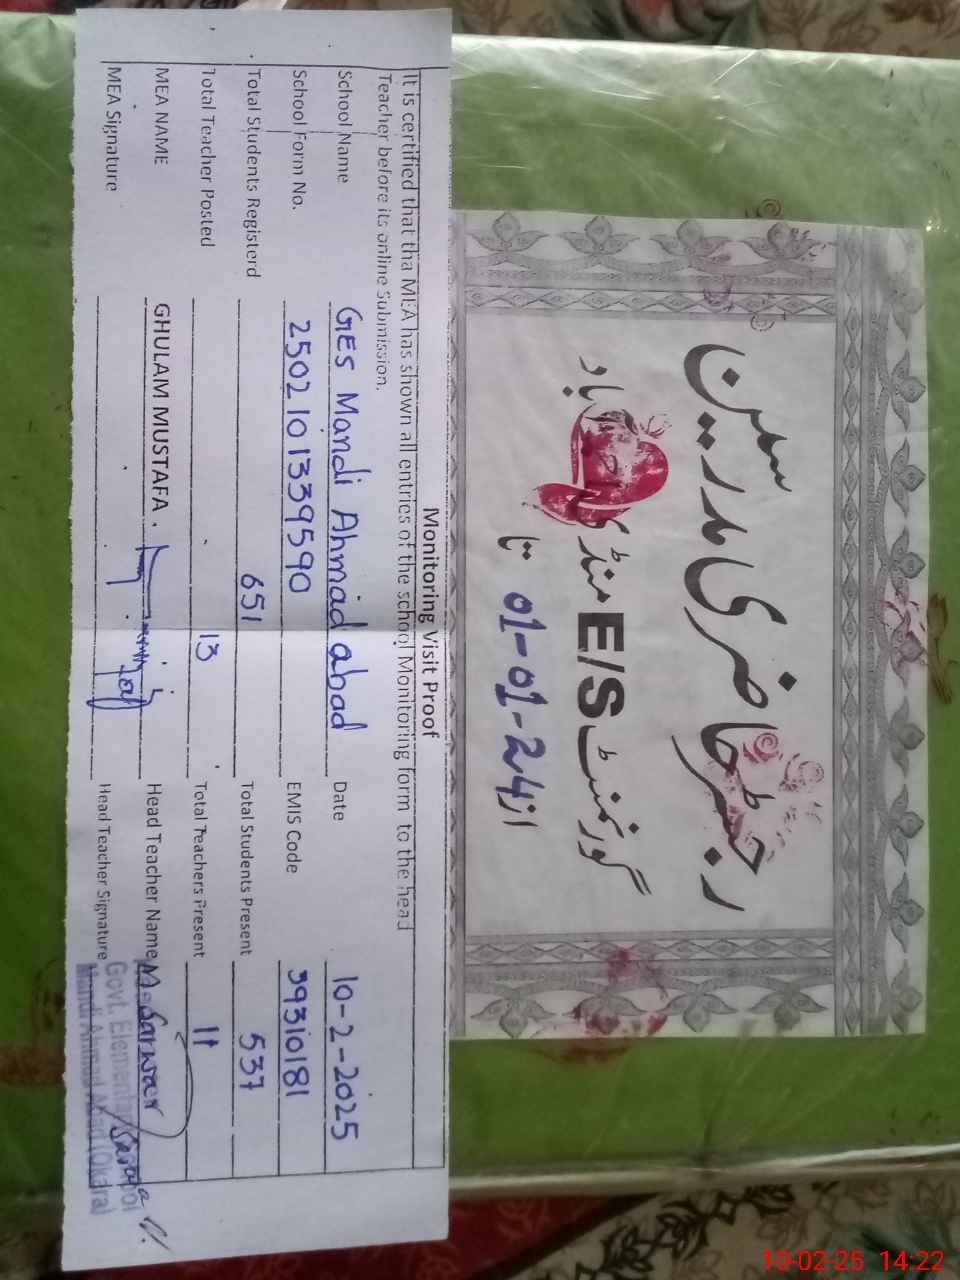 Monitoring Visit Proof
It is certified that tha MEA has shown all entries of the school Monitoring form to the head
Teacher before its online submission.
School Name GES Mandi Ahmad abad Date 10-2-2025
School Form No. 2502101339590 EMIS Code 39310181
Total Students Registerd 651 Total Students Present 537
Total Teacher Posted 13 Total Teachers Present 11
MEA NAME GHULAM MUSTAFA . Head Teacher Name M. Sarwar
MEA Signature Head Teacher Signature
Govt. Elementary School
Mandi Ahmad Abad (Okara)
رجسٹر حاضری مدرسین
گورنمنٹ E/S منڈی احمد آباد
از 01-01-24 تا
10-02-25 14:22